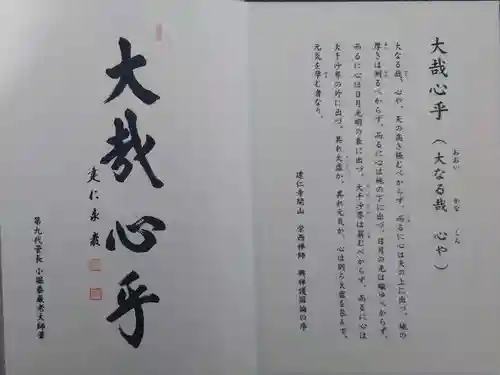 大哉心乎（大なる哉　心や）
おおい　かな　しん
大なる哉、心や、天の高き極むべからず、而るに心は天の上に出づ、地の
厚きは測るべからず、而るに心は地の下に出づ、日月の光は踰ゆべからず、
而るに心は日月光明の表に出づ、大千沙界は窮むべからず、而るに心は
大千沙界の外に出づ、其れ太虚か、其れ元気か、心は則ち太虚を包んで、
元気を孕む者なり。
建仁寺開山　栄西禅師　興禅護国論の序
大哉心乎
建仁泰巌
第九代管長　小堀泰巌老大師筆